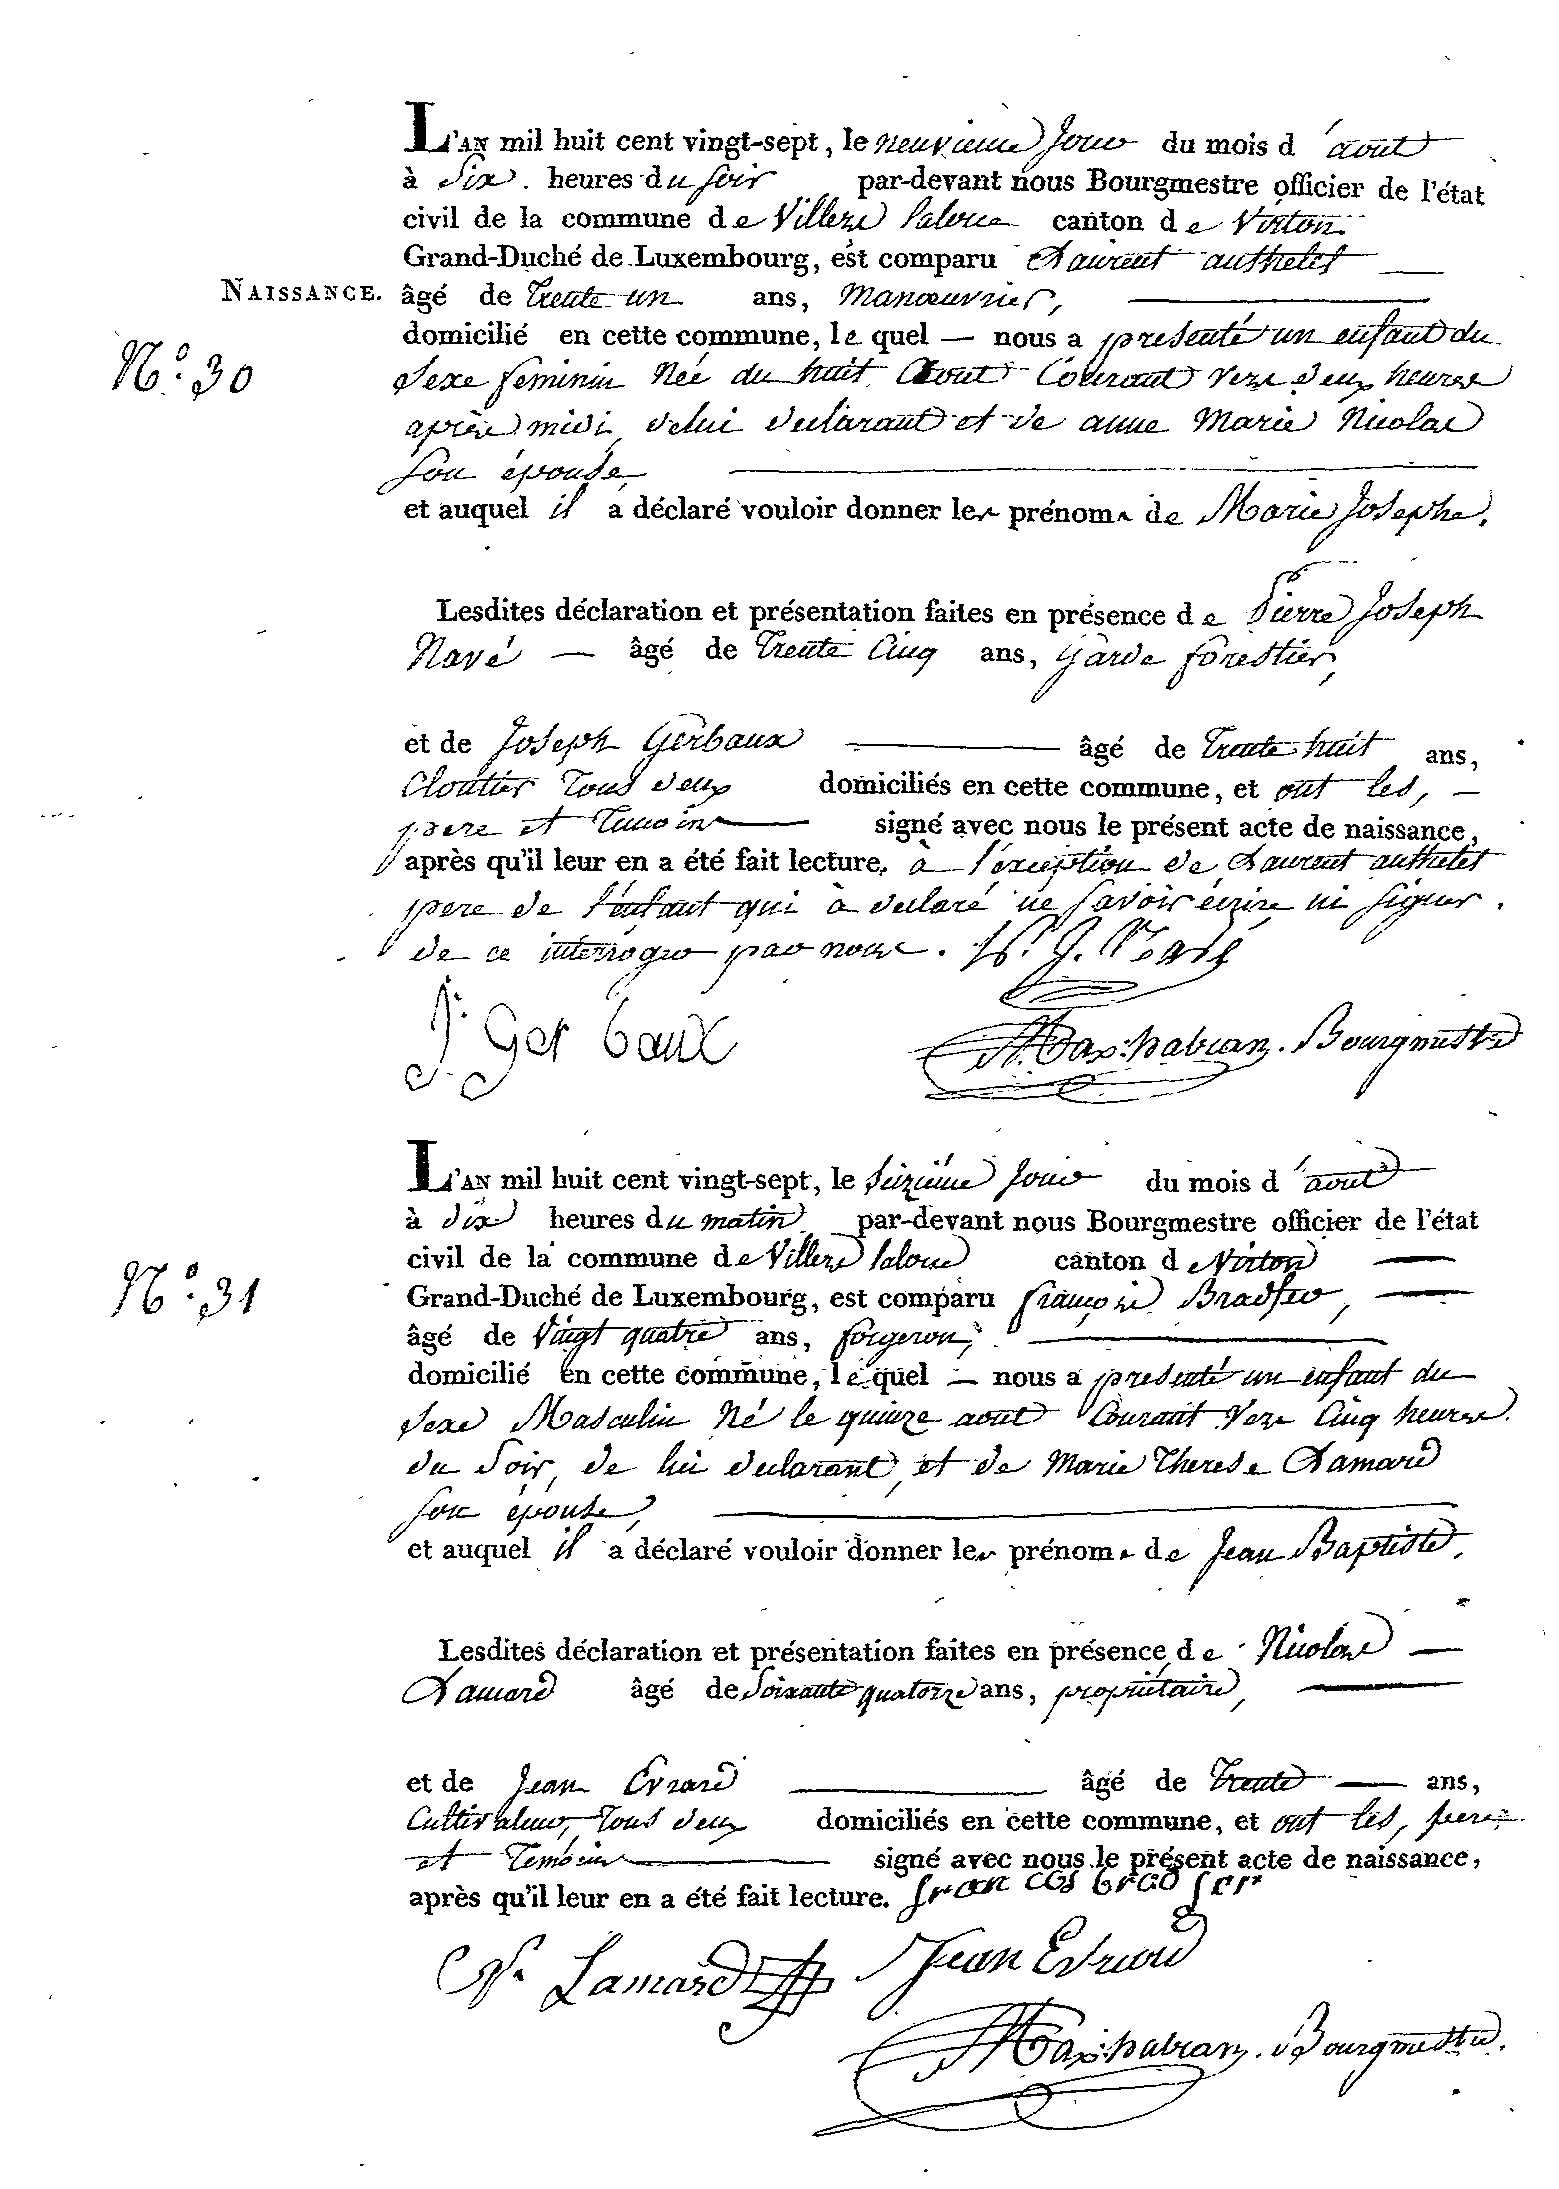 L'AN mil huit cent vingt-sept, le neuvieme Jour du mois d'août
à Six heures du soir par-devant nous Bourgmestre officier de l'état
civil de la commune de Villers laloue canton de Virton
Grand-Duché de Luxembourg, est comparu Laurent authelet
NAISSANCE. âgé de Trente un ans, Manœuvrier,
domicilié en cette commune, le quel — nous a presenté un enfant du
N.o 30
Sexe feminin Née du huit Aout Courant vers deux heures
après midi, de lui declarant et de anne Marie Nicolas
Son épouse,
et auquel il a déclaré vouloir donner les prénoms de Marie Josephe.
Lesdites déclaration et présentation faites en présence de Pierre Joseph
Navé — âgé de Trente Cinq ans, Garde forestier,
et de Joseph Gerbaux âgé de Trente huit ans,
Cloutier Tous deux domiciliés en cette commune, et ont les, —
pere et Temoins signé avec nous le présent acte de naissance,
après qu'il leur en a été fait lecture. à l'exception de Laurent authelet
pere de l'enfant qui à declaré ne savoir écrire ni signer.
de ce interrogé par nous. P. J. Navé
J. Gerbaux Bourgmestre
L'AN mil huit cent vingt-sept, le Seizième Jour du mois d'août
à dix heures du matin par-devant nous Bourgmestre officier de l'état
civil de la commune de Villers laloue canton de Virton —
N.o 31
Grand-Duché de Luxembourg, est comparu françois Bradfer, —
âgé de Vingt quatre ans, forgeron,
domicilié en cette commune, le quel — nous a presenté un enfant du
Sexe Masculin Né le quinze aout Courant vers Cinq heures
du Soir, de lui declarant, et de Marie Therese Lamard
Son épouse,
et auquel il a déclaré vouloir donner les prénoms de Jean Baptiste.
Lesdites déclaration et présentation faites en présence de Nicolas —
Lamard âgé de Soixante quatorze ans, propriétaire,
et de Jean Evrard âgé de Trente — ans,
Cultivateur, Tous deux domiciliés en cette commune, et ont les, pere,
et Temoins signé avec nous le présent acte de naissance,
après qu'il leur en a été fait lecture. francos bradfer
N. Lamard Jean Evrard
Bourgmestre.